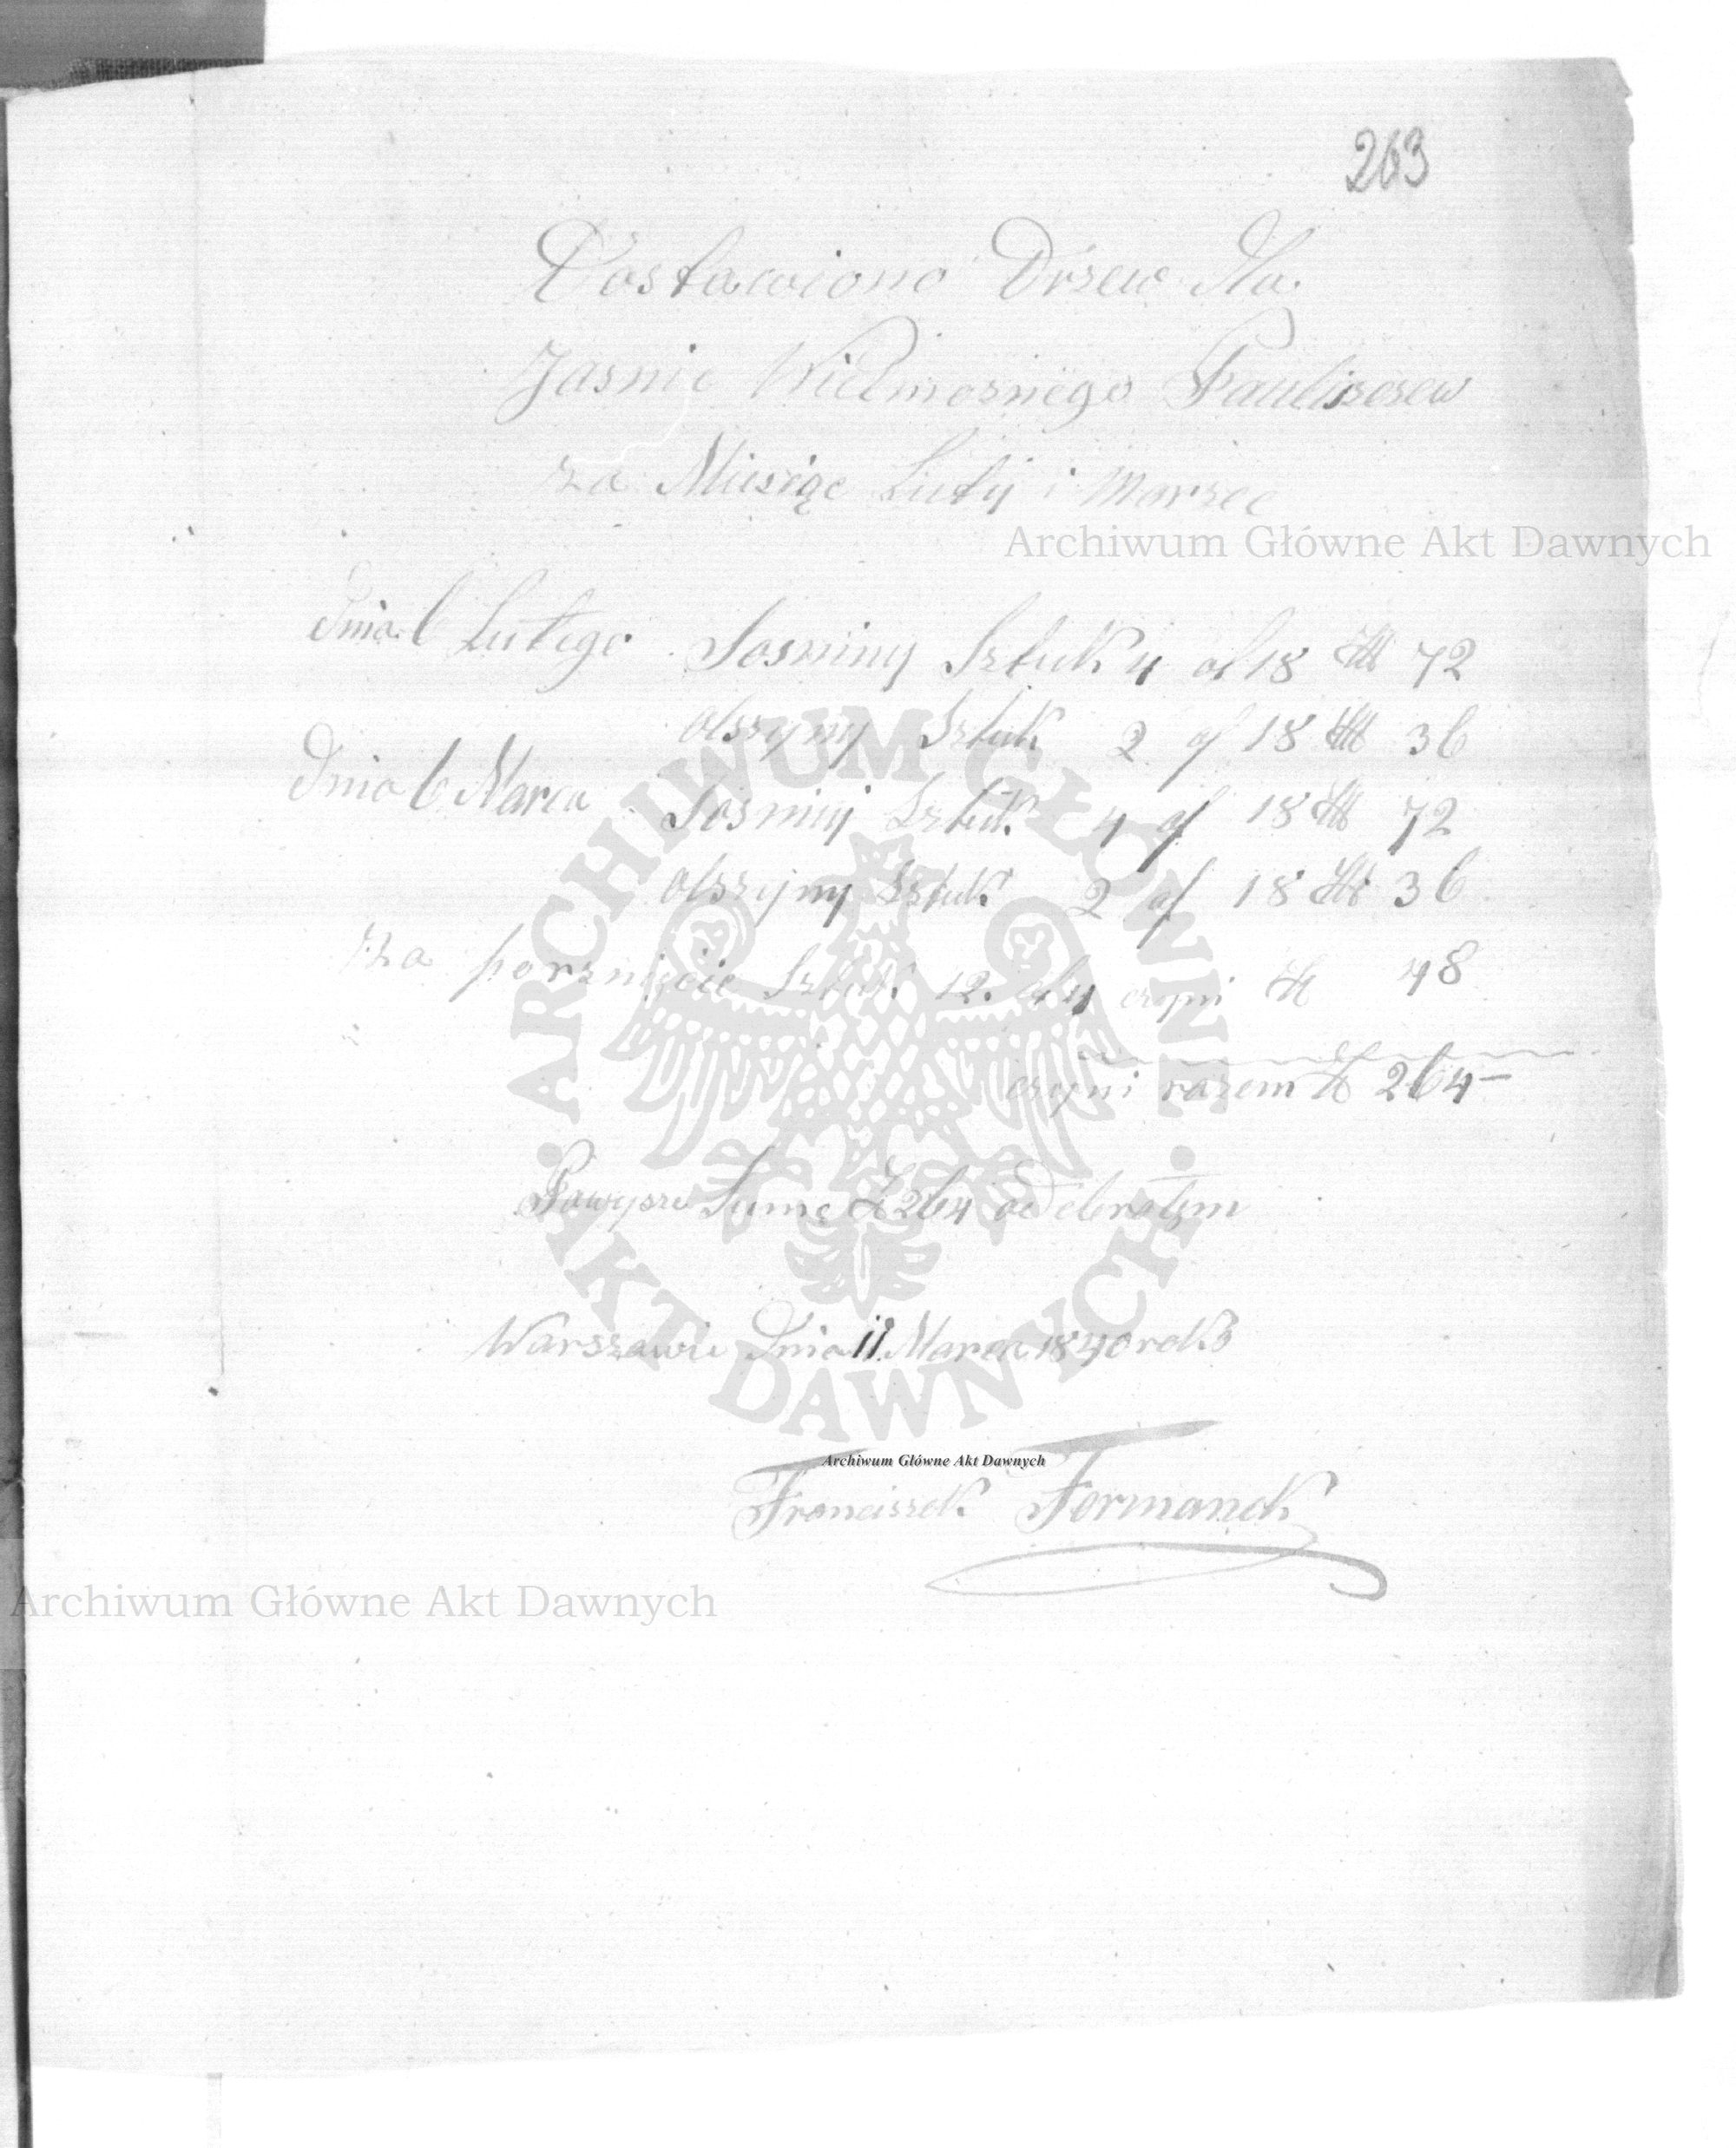 263
Dostawiono Drzew Dla
Jasnie Wielmoznego
za Miesiąc Luty i Marzec
Archiwum Główne Akt Dawnych
Dnia 6 Lutego Sosniny Sztuk 4 af 18 72
olszyny Sztuk 2 af 18 36
Dnia 6 Marca Sosniny Sztuk 4 af 18 72
olszyny Sztuk 2 af 18 36
za porznięcie Sztuk 12. af 4 czyni 48
czyni razem 264—
Powyzsze Sumę 264 odebrałem
Warszawie Dnia 11 Marca 1840 roku
ARCHIWUM GŁÓWNE • AKT DAWNYCH •
Archiwum Główne Akt Dawnych
Franciszek Formanek
Archiwum Główne Akt Dawnych